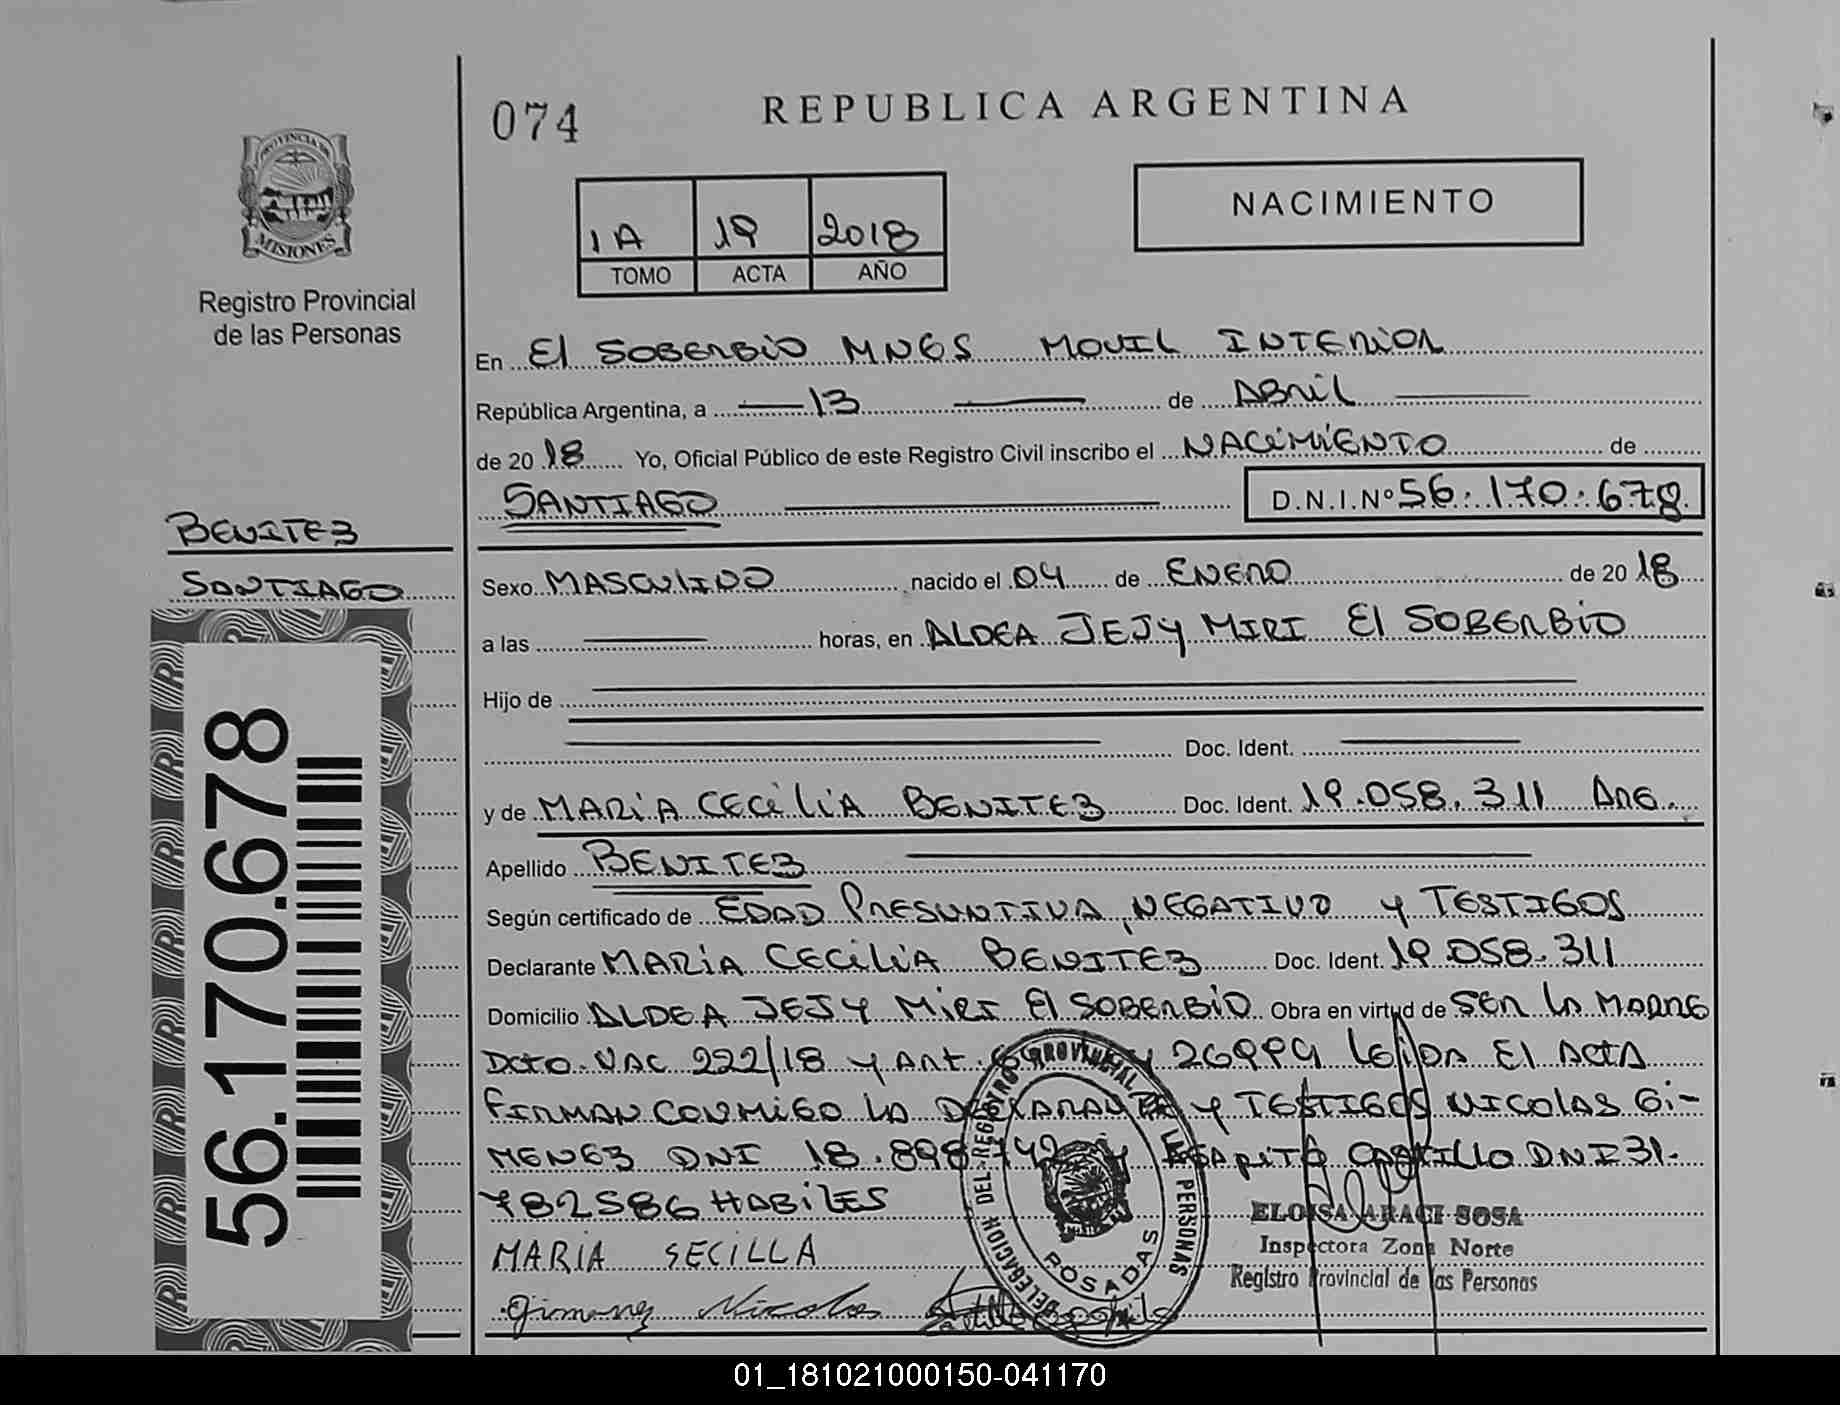 074
REPUBLICA ARGENTINA
PROVINCIA DE
MISIONES
Registro Provincial
de las Personas
1A 19 2018
TOMO ACTA AÑO
NACIMIENTO
En El SOBERBIO MNES MOVIL INTERIOR
República Argentina, a 13 de ABRIL
de 2018 Yo, Oficial Público de este Registro Civil inscribo el NACIMIENTO de
SANTIAGO D.N.I.Nº 56.170.678
BENITEZ
SANTIAGO
Sexo MASCULINO nacido el 04 de ENERO de 2018
a las horas, en ALDEA JEJY MIRI El SOBERBIO
Hijo de
Doc. Ident.
y de MARIA CECILIA BENITEZ Doc. Ident. 19.058.311 ARG.
Apellido BENITEZ
Según certificado de EDAD PRESUNTIVA, NEGATIVO y TESTIGOS
Declarante MARIA CECILIA BENITEZ Doc. Ident. 19.058.311
Domicilio ALDEA JEJY MIRI El SOBERBIO Obra en virtud de SER LA MADRE
DCTO. NAC 222/18 y ART. 26994 LEIDA El ACTA
FIRMAN CONMIGO LA DECLARANTE y TESTIGOS NICOLAS GI-
MENEZ DNI 18.898.742 y AGAPITO CASTILLO DNI 31.
782586 HABILES
MARIA SECILLA
Gimenez Nicolas
DELEGACION DEL REGISTRO PROVINCIAL LAS PERSONAS
POSADAS
ELOISA ARACI SOSA
Inspectora Zona Norte
Registro Provincial de las Personas
56.170.678
01_181021000150-041170